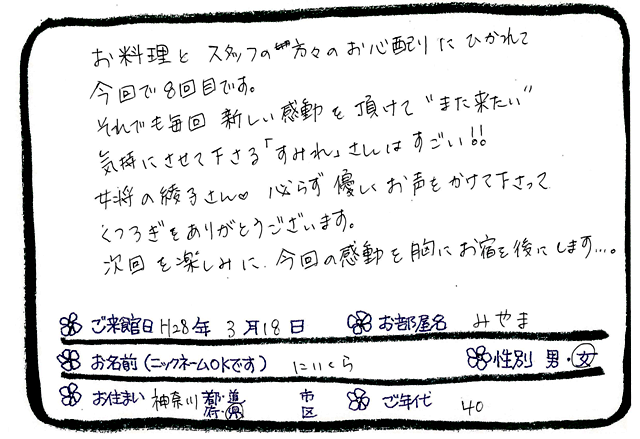 お料理と スタッフの方々のお心配りにひかれて
今回で8回目です。
それでも毎回 新しい感動を頂けて"また来たい"
気持にさせて下さる「すみれ」さんはすごい!!
女将の綾子さん♡ 必らず優しくお声をかけて下さって
くつろぎをありがとうございます。
次回を楽しみに、今回の感動を胸にお宿を後にします…。
ご来館日 H28年 3月18日 お部屋名 みやま
お名前(ニックネームOKです) にいくら 性別 男・女
お住まい 神奈川 都・道 府・県 市 区 ご年代 40